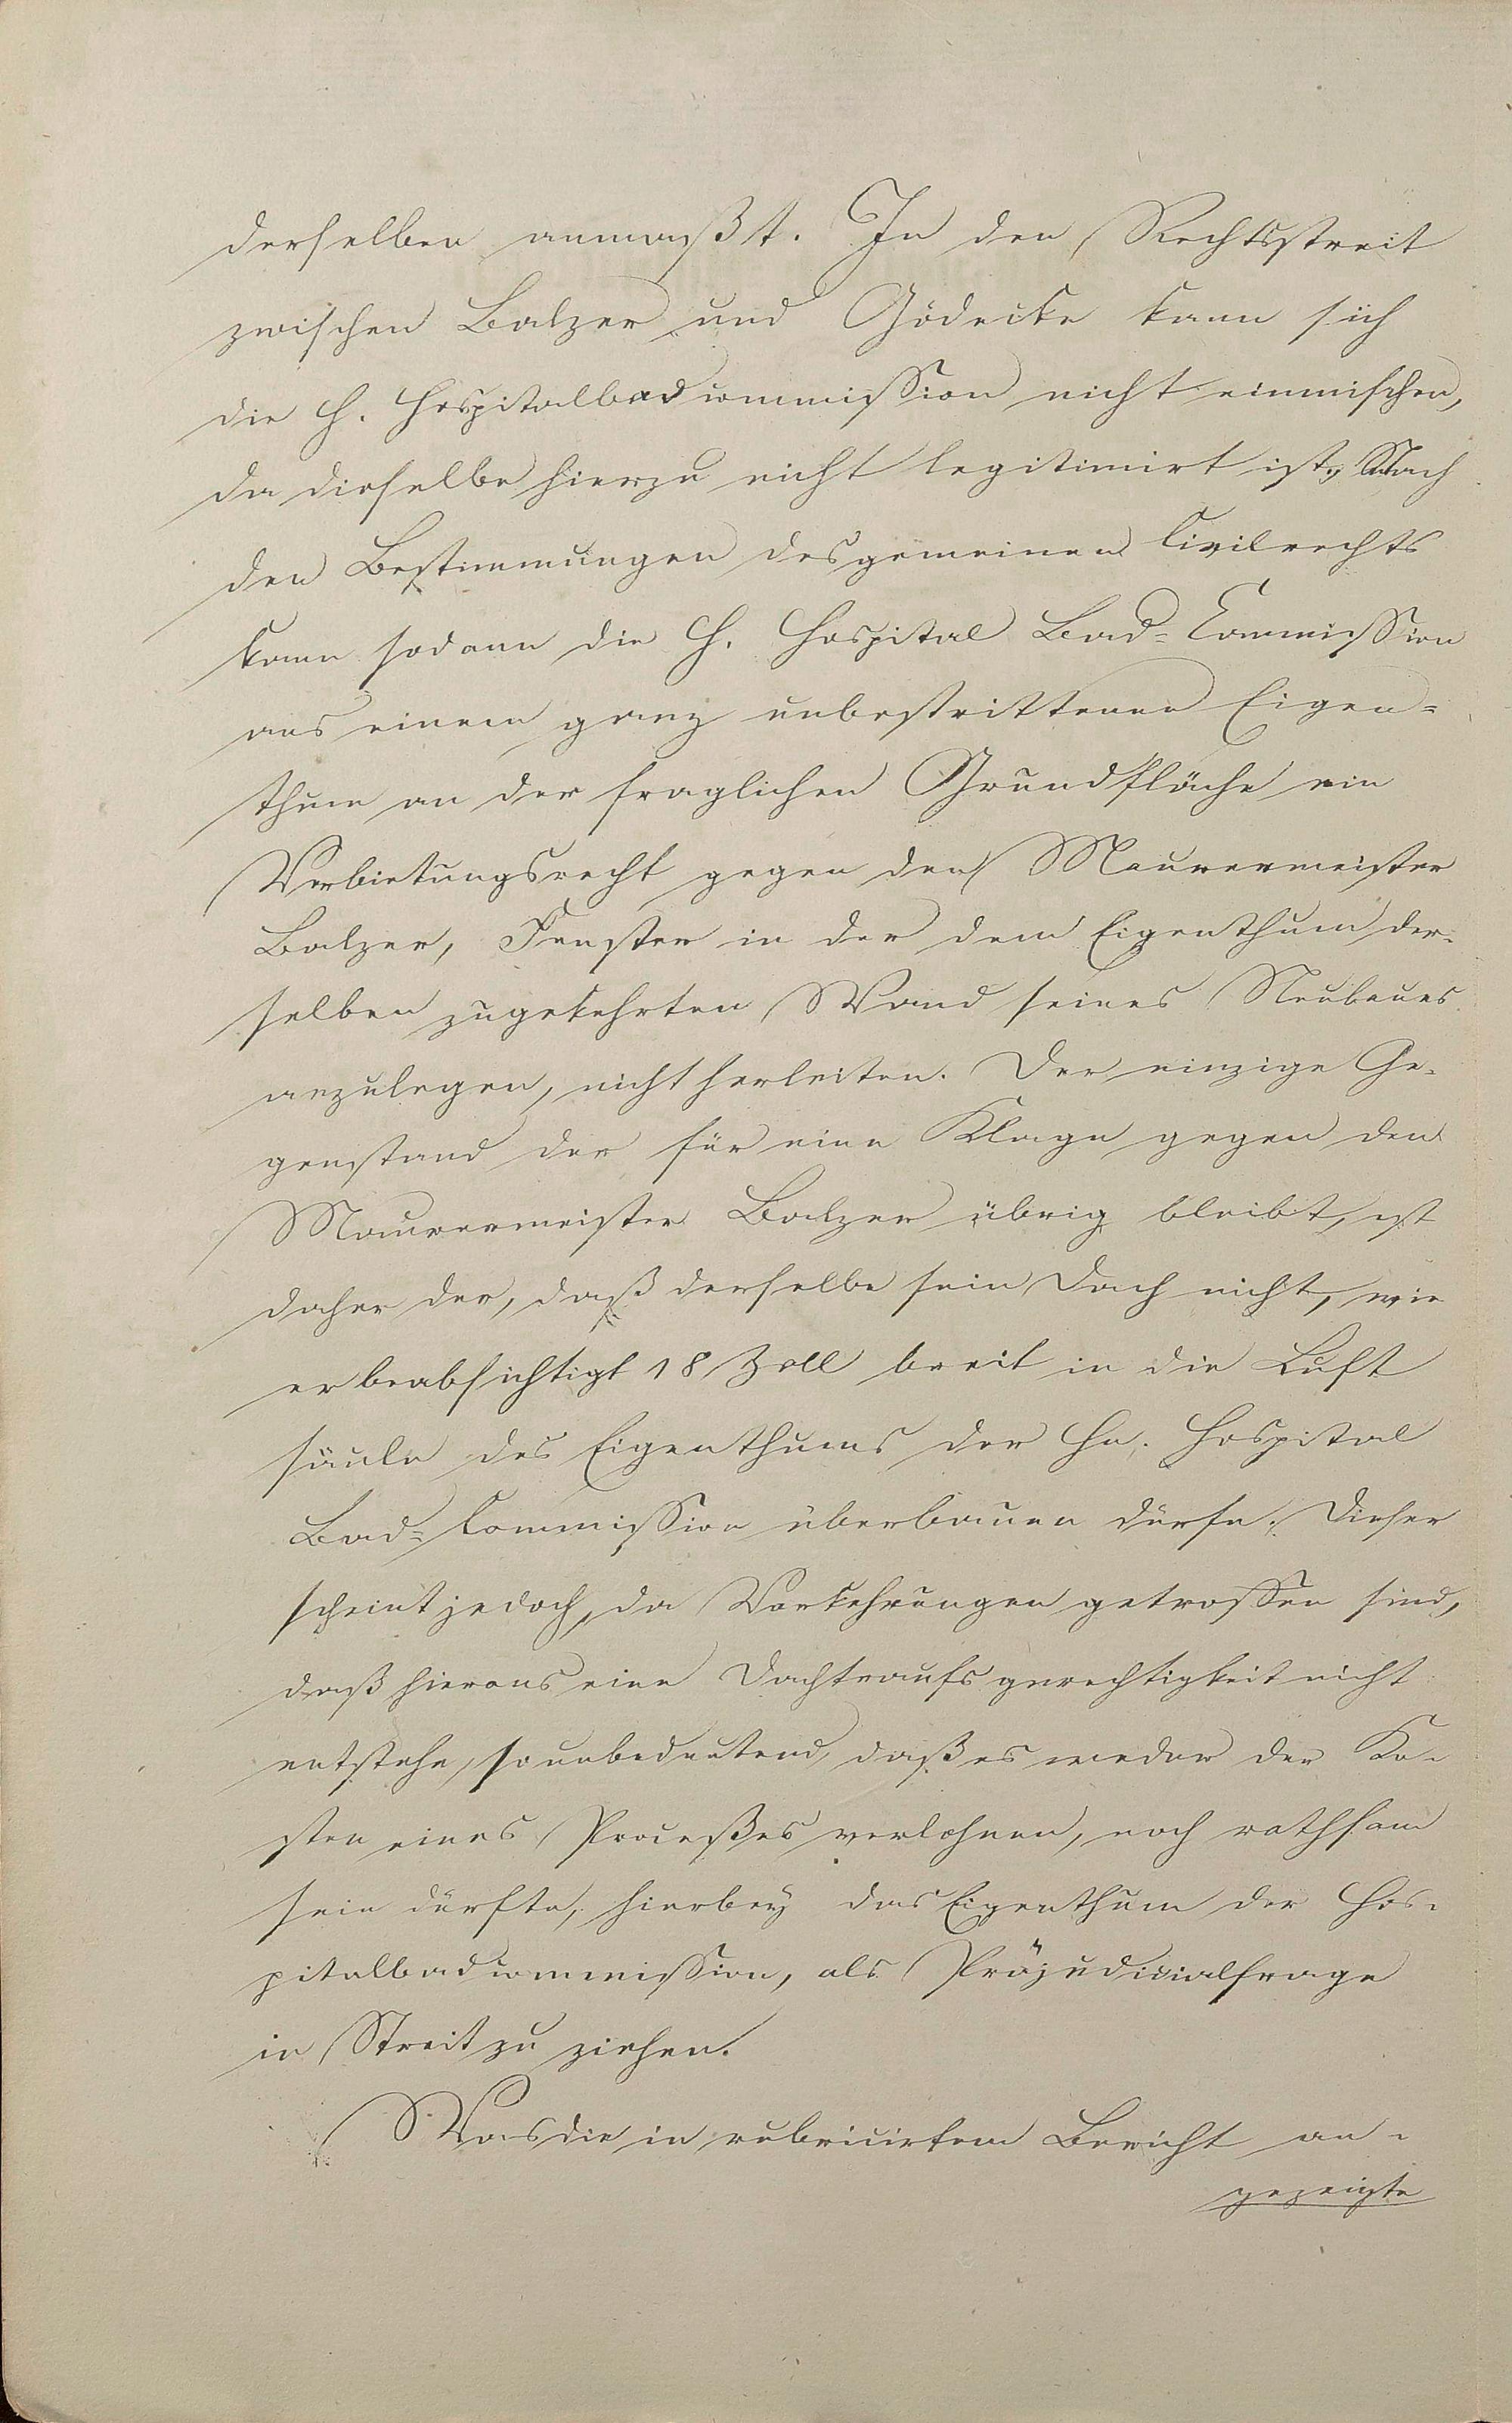 derselben anmaßt. In den Rechtsstreit
zwischen Balzer und Gödecke kann sich
die H. Hospitalbadcommission nicht einmischen,
da dieselbe hierzu nicht legitimirt ist, Nach
den Bestimmungen des gemeinen Civilrechts
kann sodann die H. Hospital Bad-Commission
aus einem ganz unbestrittenen Eigen-
thum an der fraglichen Grundfläche ein
Verbietungsrecht gegen den Maurermeister
Balzer, Fenster in der dem Eigenthum der-
selben zugekehrten Wand seines Neubaues
anzulegen, nicht herleiten. Der einzige Ge-
genstand der für eine Klage gegen den
Maurermeister Balzer übrig bleibt, ist
daher der, daß derselbe sein Dach nicht, wie
er beabsichtigt 18 Zoll breit in die Luft
säule des Eigenthums der Hn. Hospital
Bad-Commission überbauen dürfe. Dieser
scheint jedoch, da Vorkehrungen getroffen sind,
daß hieraus eine Dachtraufsgerechtigkeit nicht
entstehe, so unbedeutend, daß es weder der Ko-
sten eines Proceßes verlohnen, noch rathsam
sein dürfte, hierbey das Eigenthum der Hos-
pitalbadcommission, als Präjudicialfrage
in Streit zu ziehen.
Was die in rubricirtem Bericht an-
gezeigte